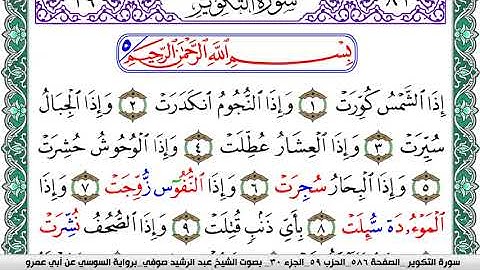 سورة التكوير
٨١
بِسْمِ ٱللَّهِ ٱلرَّحْمَٰنِ ٱلرَّحِيمِ
إِذَا ٱلشَّمْسُ كُوِّرَتْ ١ وَإِذَا ٱلنُّجُومُ ٱنكَدَرَتْ ٢ وَإِذَا ٱلْجِبَالُ
سُيِّرَتْ ٣ وَإِذَا ٱلْعِشَارُ عُطِّلَتْ ٤ وَإِذَا ٱلْوُحُوشُ حُشِرَتْ
٥ وَإِذَا ٱلْبِحَارُ سُجِرَتْ ٦ وَإِذَا ٱلنُّفُوس زُّوِّجَتْ ٧ وَإِذَا
ٱلْمَوْءُۥدَة سُّئِلَتْ ٨ بِأَيِّ ذَنۢبٖ قُتِلَتْ ٩ وَإِذَا ٱلصُّحُفُ نُشِّرَتْ
سورة التكوير _الصفحة ٥٨٦_ الحزب ٥٩_الجزء ٣٠_ بصوت الشيخ عبد الرشيد صوفي_برواية السوسي عن أبي عمرو